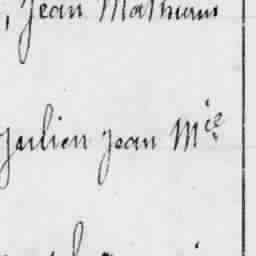 , Jean Mathurin
Julien Jean Mie